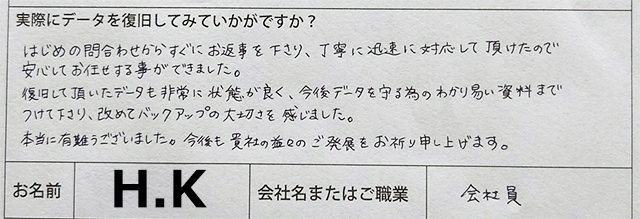 実際にデータを復旧してみていかがですか？
はじめの問合わせからすぐにお返事を下さり、丁寧に迅速に対応して頂けたので
安心してお任せする事ができました。
復旧して頂いたデータも非常に状態が良く、今後データを守る為のわかり易い資料まで
つけて下さり、改めてバックアップの大切さを感じました。
本当に有難うございました。今後も貴社の益々のご発展をお祈り申し上げます。
お名前 H.K 会社名またはご職業 会社員